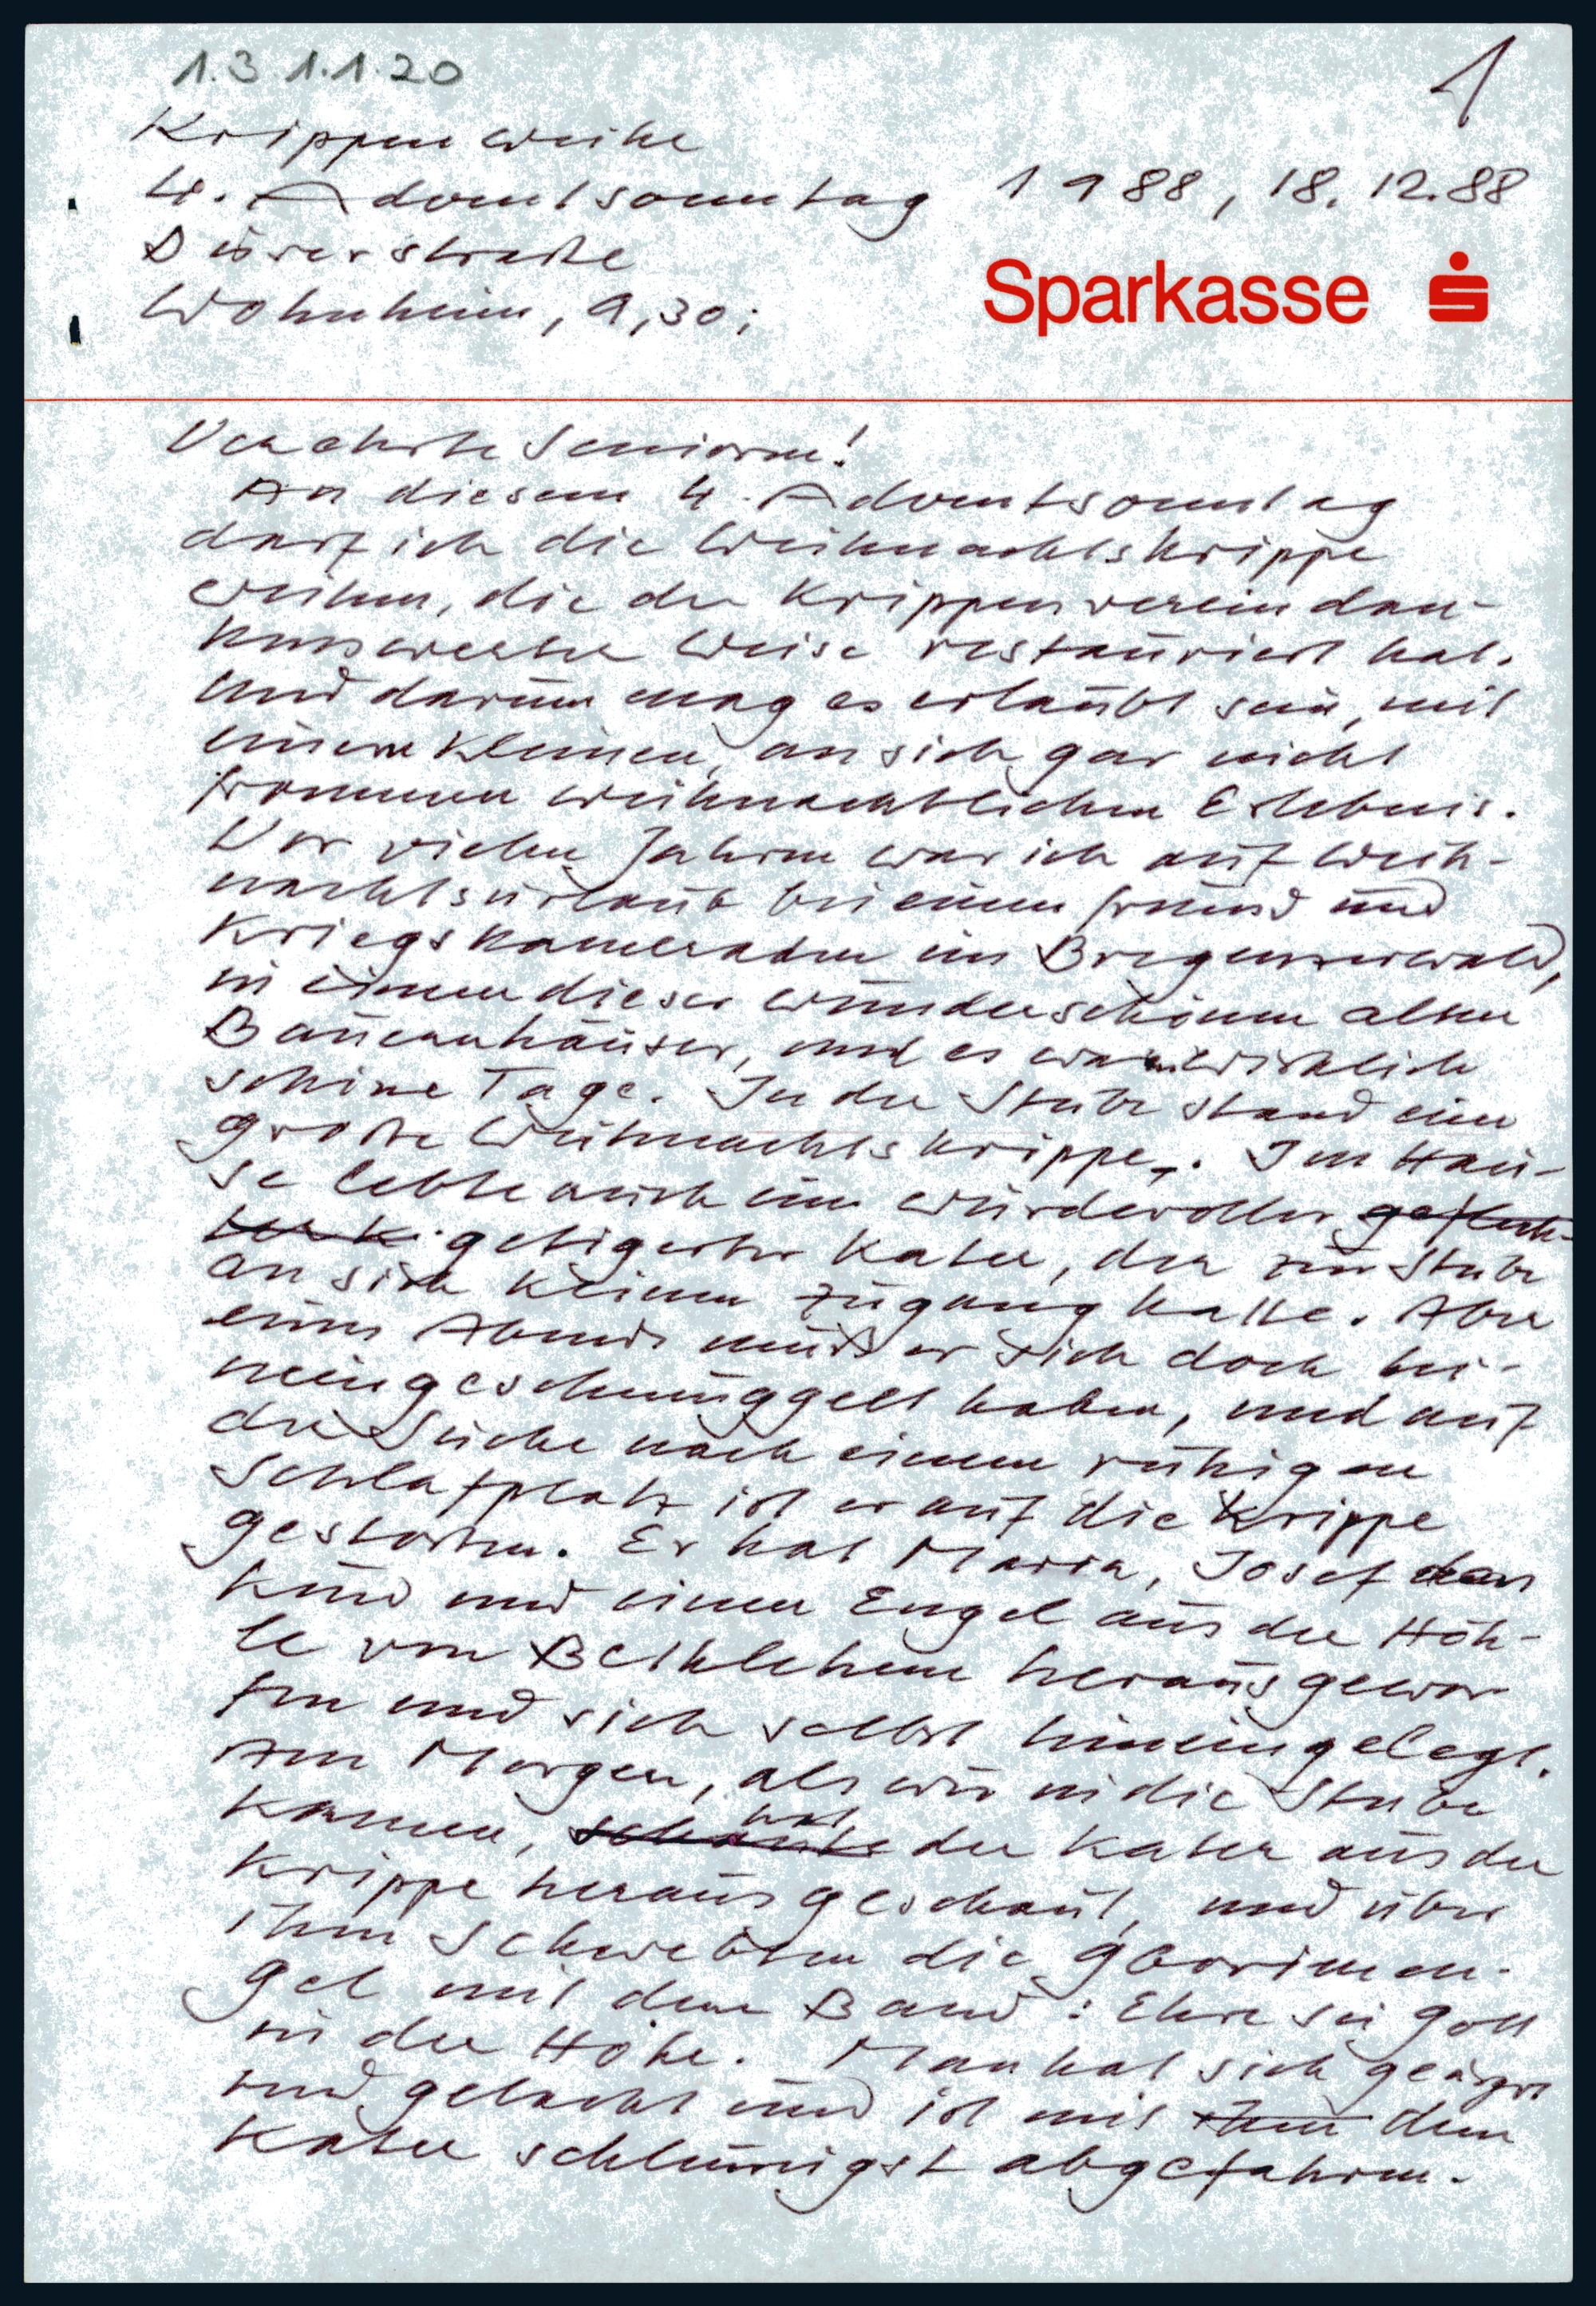 1.3.1.1.20
1
Krippenweihe
4. Adventsonntag 1988, 18.12.88
Dürerstraße
Wohnheim, 9,30;
Sparkasse
Verehrte Senioren!
An diesem 4. Adventsonntag
darf ich die Weihnachtskrippe
weihen, die der Krippenverein dan-
kenswerter Weise restauriert hat.
Und darum mag es erlaubt sein, mit
einem kleinen, an sich gar nicht
frommen weihnachtlichen Erlebnis.
Vor vielen Jahren war ich auf Weih-
nachtsurlaub bei einem Freund und
Kriegskameraden im Bregenzerwald,
in einem dieser wunderschönen alten
Bauernhäuser, und es waren wirklich
schöne Tage. In der Stube stand eine
große Weihnachtskrippe. Im Hau-
se lebte auch ein würdevoller
getigerter Kater, der zur Stube
an sich keinen Zugang hatte. Aber
eines Abends muß er sich doch hi-
neingeschmuggelt haben, und auf
der Suche nach einem ruhigen
Schlafplatz ist er auf die Krippe
gestoßen. Er hat Maria, Josef das
Kind und einen Engel aus der Höh-
le von Bethlehem herausgewor-
fen und sich selbst hineingelegt.
Am Morgen, als wir in die Stube
kamen, hat der Kater aus der
Krippe herausgeschaut, und über
ihm schwebten die Glorienen-
gel mit dem Band: Ehre sei Gott
in der Höhe. Man hat sich geärgert
und gelacht und ist mit dem
Kater schleunigst abgefahren.